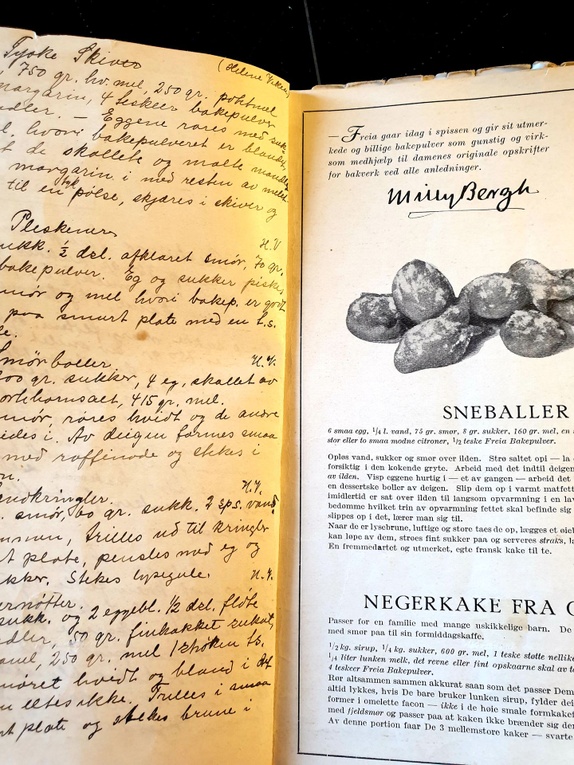 Tyske Skiver (Helene V
750 gr. hv. mel, 250 gr. potmel
margarin, 4 teskeer bakepulver
Eggene røres med suk
hvori bakepulveret er blandet
de skollete og malte mandler
margarin i med resten av melet
til en pølse, skjæres i skiver og
Pleskener H.V
sukk. ½ dcl. afklaret smør, 70 gr.
bakepulver. Eg og sukker piskes
smør og mel hvori bakep. er godt
paa smurt plate med en t.s.
Smørboller. H.V.
00 gr. sukker, 4 eg, skallet av
hjorthornsalt, 415 gr. mel.
smør, røres hvidt og de andre
Av deigen formes smaa
med raffinade og stekes i
H.V.
smør, 60 gr. sukk. 2 sps. vand
trilles ud til kringler
plate, pensles med eg og
sukker. Stekes lysegule. H.V.
sukk. og 2 eggebl. ½ dcl. fløte
50 gr. finhakket sukat,
250 gr. mel
smøret hvidt og bland i det
eltes ikke. Trilles i smaa
smurt plate og stekes brune i
— Freia gaar idag i spissen og gir sit utmer-
kede og billige bakepulver som gunstig og virk-
som medhjælp til damenes originale opskrifter
for bakverk ved alle anledninger.
Milly Bergh
SNEBALLER
6 smaa egg, ¼ l. vand, 75 gr. smør, 8 gr. sukker, 160 gr. mel, en
stor eller to smaa modne citroner, ½ teske Freia Bakepulver.
Opløs vand, sukker og smør over ilden. Strø saltet opi — la
forsiktig i den kokende gryte. Arbeid med det indtil deigen
av ilden. Visp eggene hurtig i — et av gangen — arbeid det
en dessertske boller av deigen. Slip dem op i varmt matfett
imidlertid er sat over ilden til langsom opvarming i en
bedømme hvilket trin av opvarming fettet skal befinde sig
slippes op i det, lærer man sig til.
Naar de er lysebrune, luftige og store taces de op, lægges et øieblik
kan løpe av dem, strøes fint sukker paa og serveres straks,
En fremmedartet og utmerket, egte fransk kake til te.
NEGERKAKE FRA
Passer for en familie med mange uskikkelige barn. De
med smør paa til sin formiddagskaffe.
½ kg. sirup, ¼ kg. sukker, 600 gr. mel, 1 teske støtte nelliker
¼ liter lunken melk, det revne eller fint opskaarne skal av
4 teskeer Freia Bakepulver.
Rør altsammen sammen akkurat saan som det passer Dem
altid lykkes, hvis De bare bruker lunken sirup, fylder
former i omelette facon — ikke i de høie smale formkake
med fjeldsmør og passer paa at kaken ikke brænder sig
Av denne portion faar De 3 mellemstore kaker — svarte